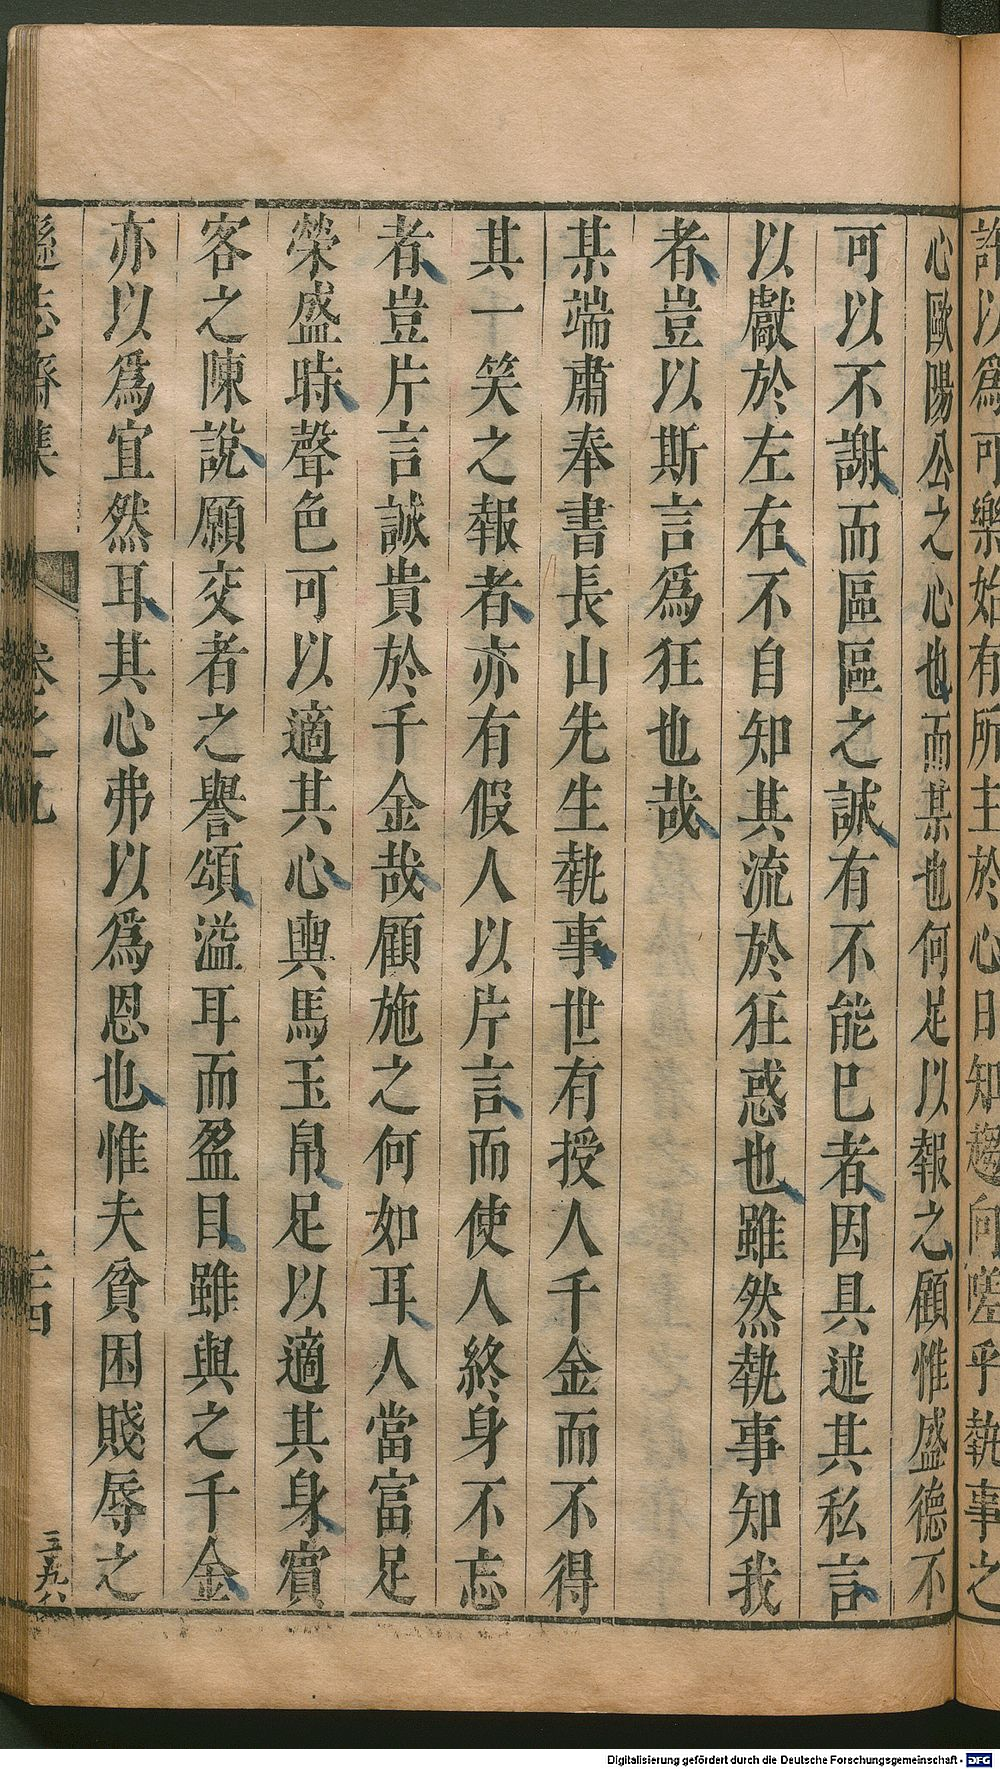 許以為可樂始有所主於心日知趨向嗟乎執事之
心歐陽公之心也而某也何足以報之顧惟盛德不
可以不謝而區區之誠有不能已者因具述其私言
以獻於左右不自知其流於狂惑也雖然執事知我
者豈以斯言爲狂也哉
某端肅奉書長山先生執事世有授人千金而不得
其一笑之報者亦有假人以片言而使人終身不忘
者豈片言誠貴於千金哉顧施之何如耳人當富足
榮盛時聲色可以適其心輿馬玉帛足以適其身賓
客之陳說願交者之譽頌溢耳而盈目雖與之千金
亦以爲宜然耳其心弗以爲恩也惟夫貧困賤辱之
遜志齋集 卷之九 二十四 三九八
Digitalisierung gefördert durch die Deutsche Forschungsgemeinschaft - DFG